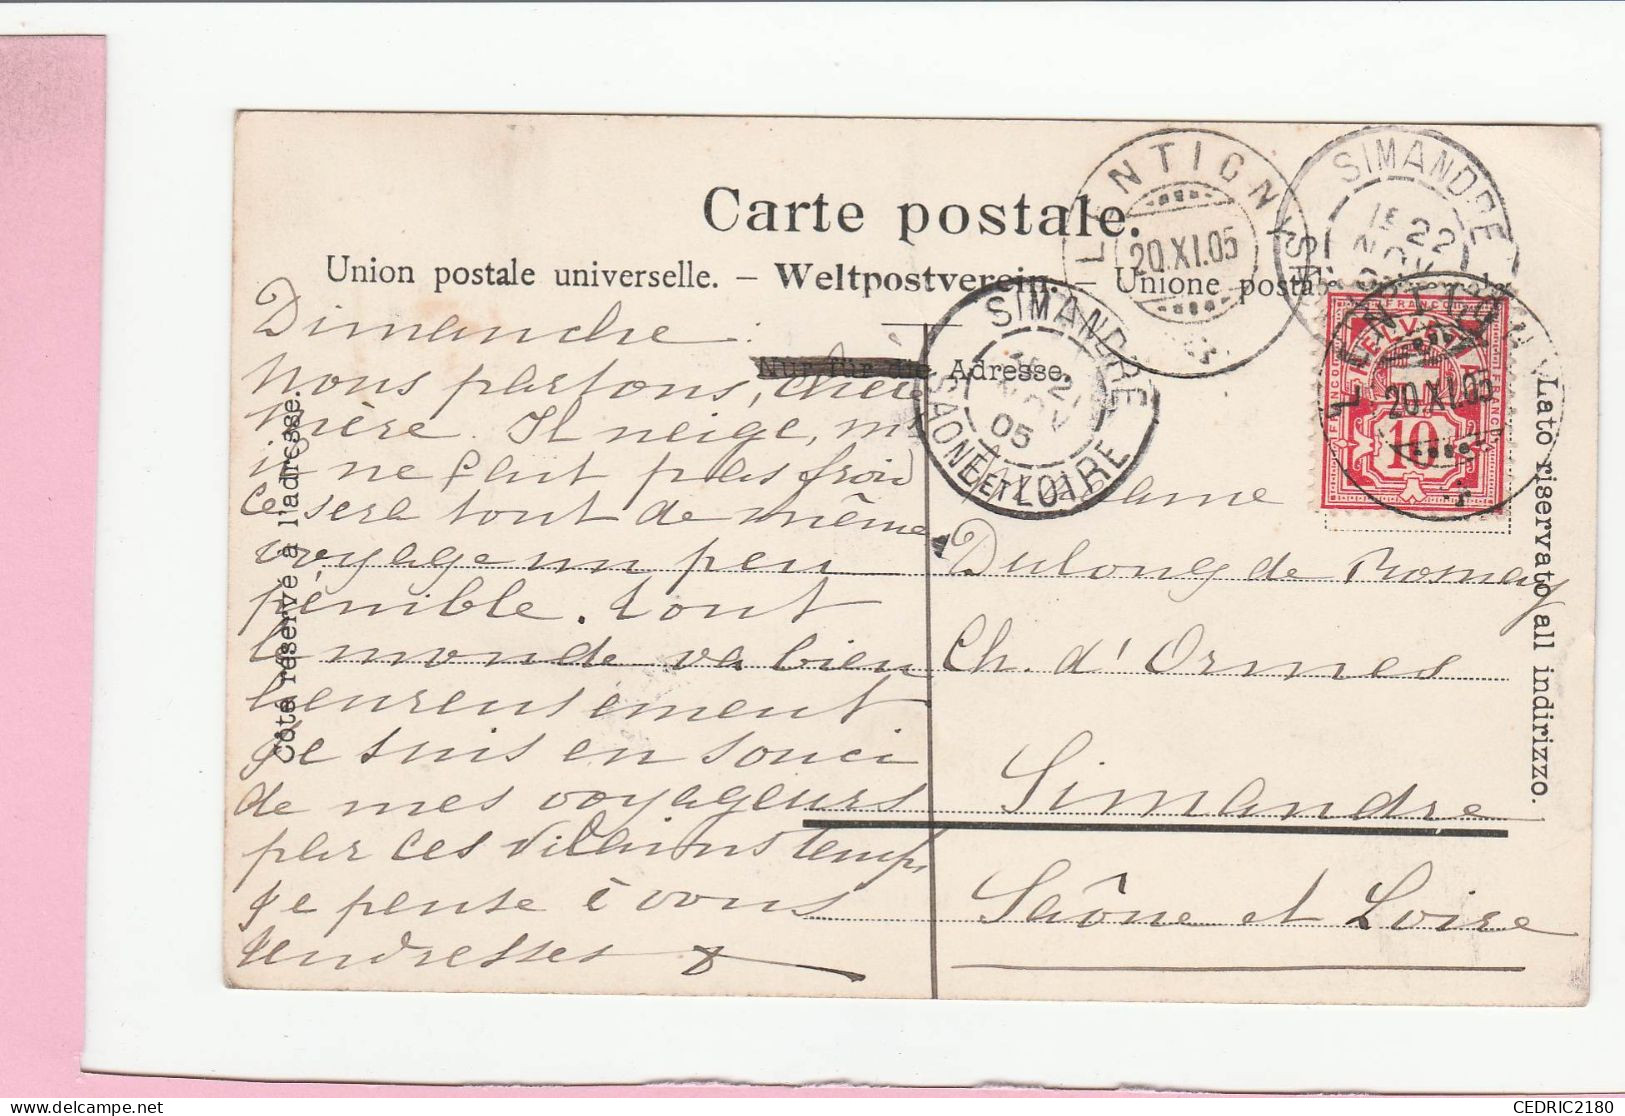 Carte postale.
Union postale universelle. – Weltpostverein. – Unione postale
Nur für die Adresse.
Côté réservé à l'adresse.
Lato riservato all indirizzo.
LENTIGNY
20.XI.05
SIMANDRE
1E 22
NOV
SIMANDRE
21
NOV
05
SAONE ET LOIRE
FRANCO
HELVETIA
10
LENTIGNY
20.XI.05
Dimanche
Nous partons, chère
mère. Il neige, m
il ne fait pas froid
ce sera tout de même
voyage un peu
pénible. Tout
le monde va bien
heureusement
Je suis en souci
de mes voyageurs
par ces vilains temps
Je pense à vous
tendresses
Madame
Dulong de Rosnay
Ch. d'Ormes
Simandre
Saône et Loire
CEDRIC2180